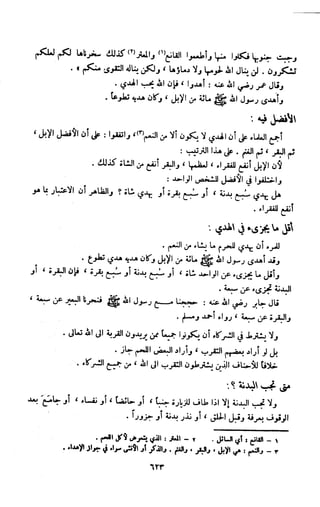 وجبت جنوبها فكلوا منها وأطعموا القانع(١) والمعتر(٢) كذلك سخرناها لكم لعلكم
تشكرون . لن ينال الله لحومها ولا دماؤها ، ولكن يناله التقوى منكم » .
وقال عمر رضي الله عنه : أهدوا ، فإن الله يحب الهدي .
وأهدى رسول الله ﷺ مائة من الإبل ، وكان هديه تطوعاً .
الأفضل فيه :
أجمع العلماء على أن الهدي لا يكون إلا من النعم(٣) ، واتفقوا : على أن الأفضل الإبل ،
ثم البقر ، ثم الغنم . على هذا الترتيب :
لأن الإبل أنفع للفقراء ، لعظمها ، والبقر أنفع من الشاة كذلك .
واختلفوا في الأفضل للشخص الواحد :
هل يهدي سبع بدنة ، أو سبع بقرة أو يهدي شاة ؟ والظاهر أن الاعتبار بما هو
أنفع للفقراء .
أقل ما يجزىء في الهدي :
للمرء أن يهدي للحرم ما يشاء من النعم .
وقد أهدى رسول الله ﷺ مائة من الإبل وكان هديه هدي تطوع .
وأقل ما يجزىء عن الواحد شاة ، أو سبع بدنة أو سبع بقرة ، فإن البقرة ، أو
البدنة تجزىء عن سبعة .
قال جابر رضي الله عنه : حججنا مع رسول الله ﷺ فنحرنا البعير عن سبعة ،
والبقرة عن سبعة ، رواه أحمد ومسلم .
ولا يشترط في الشركاء أن يكونوا جميعاً ممن يريدون القربة إلى الله تعالى .
بل لو أراد بعضهم التقرب ، وأراد البعض اللحم جاز .
خلافاً للأحناف الذين يشترطون التقرب إلى الله ، من جميع الشركاء .
متى تجب البدنة ؟ :
ولا تجب البدنة إلا إذا طاف للزيارة جنباً ، أو حائضاً ، أو نفساء ، أو جامع بعد
الوقوف بعرفة وقبل الحلق ، أو نذر بدنة أو جزوراً .
١ – القانع : أي السائل . ٢ – المعتر : الذي يتعرض لأكل اللحم .
٣ – والنعم : هي الإبل ، والبقر ، والغنم . والذكر أو الأنثى سواء في جواز الإهداء .
٦٢٣